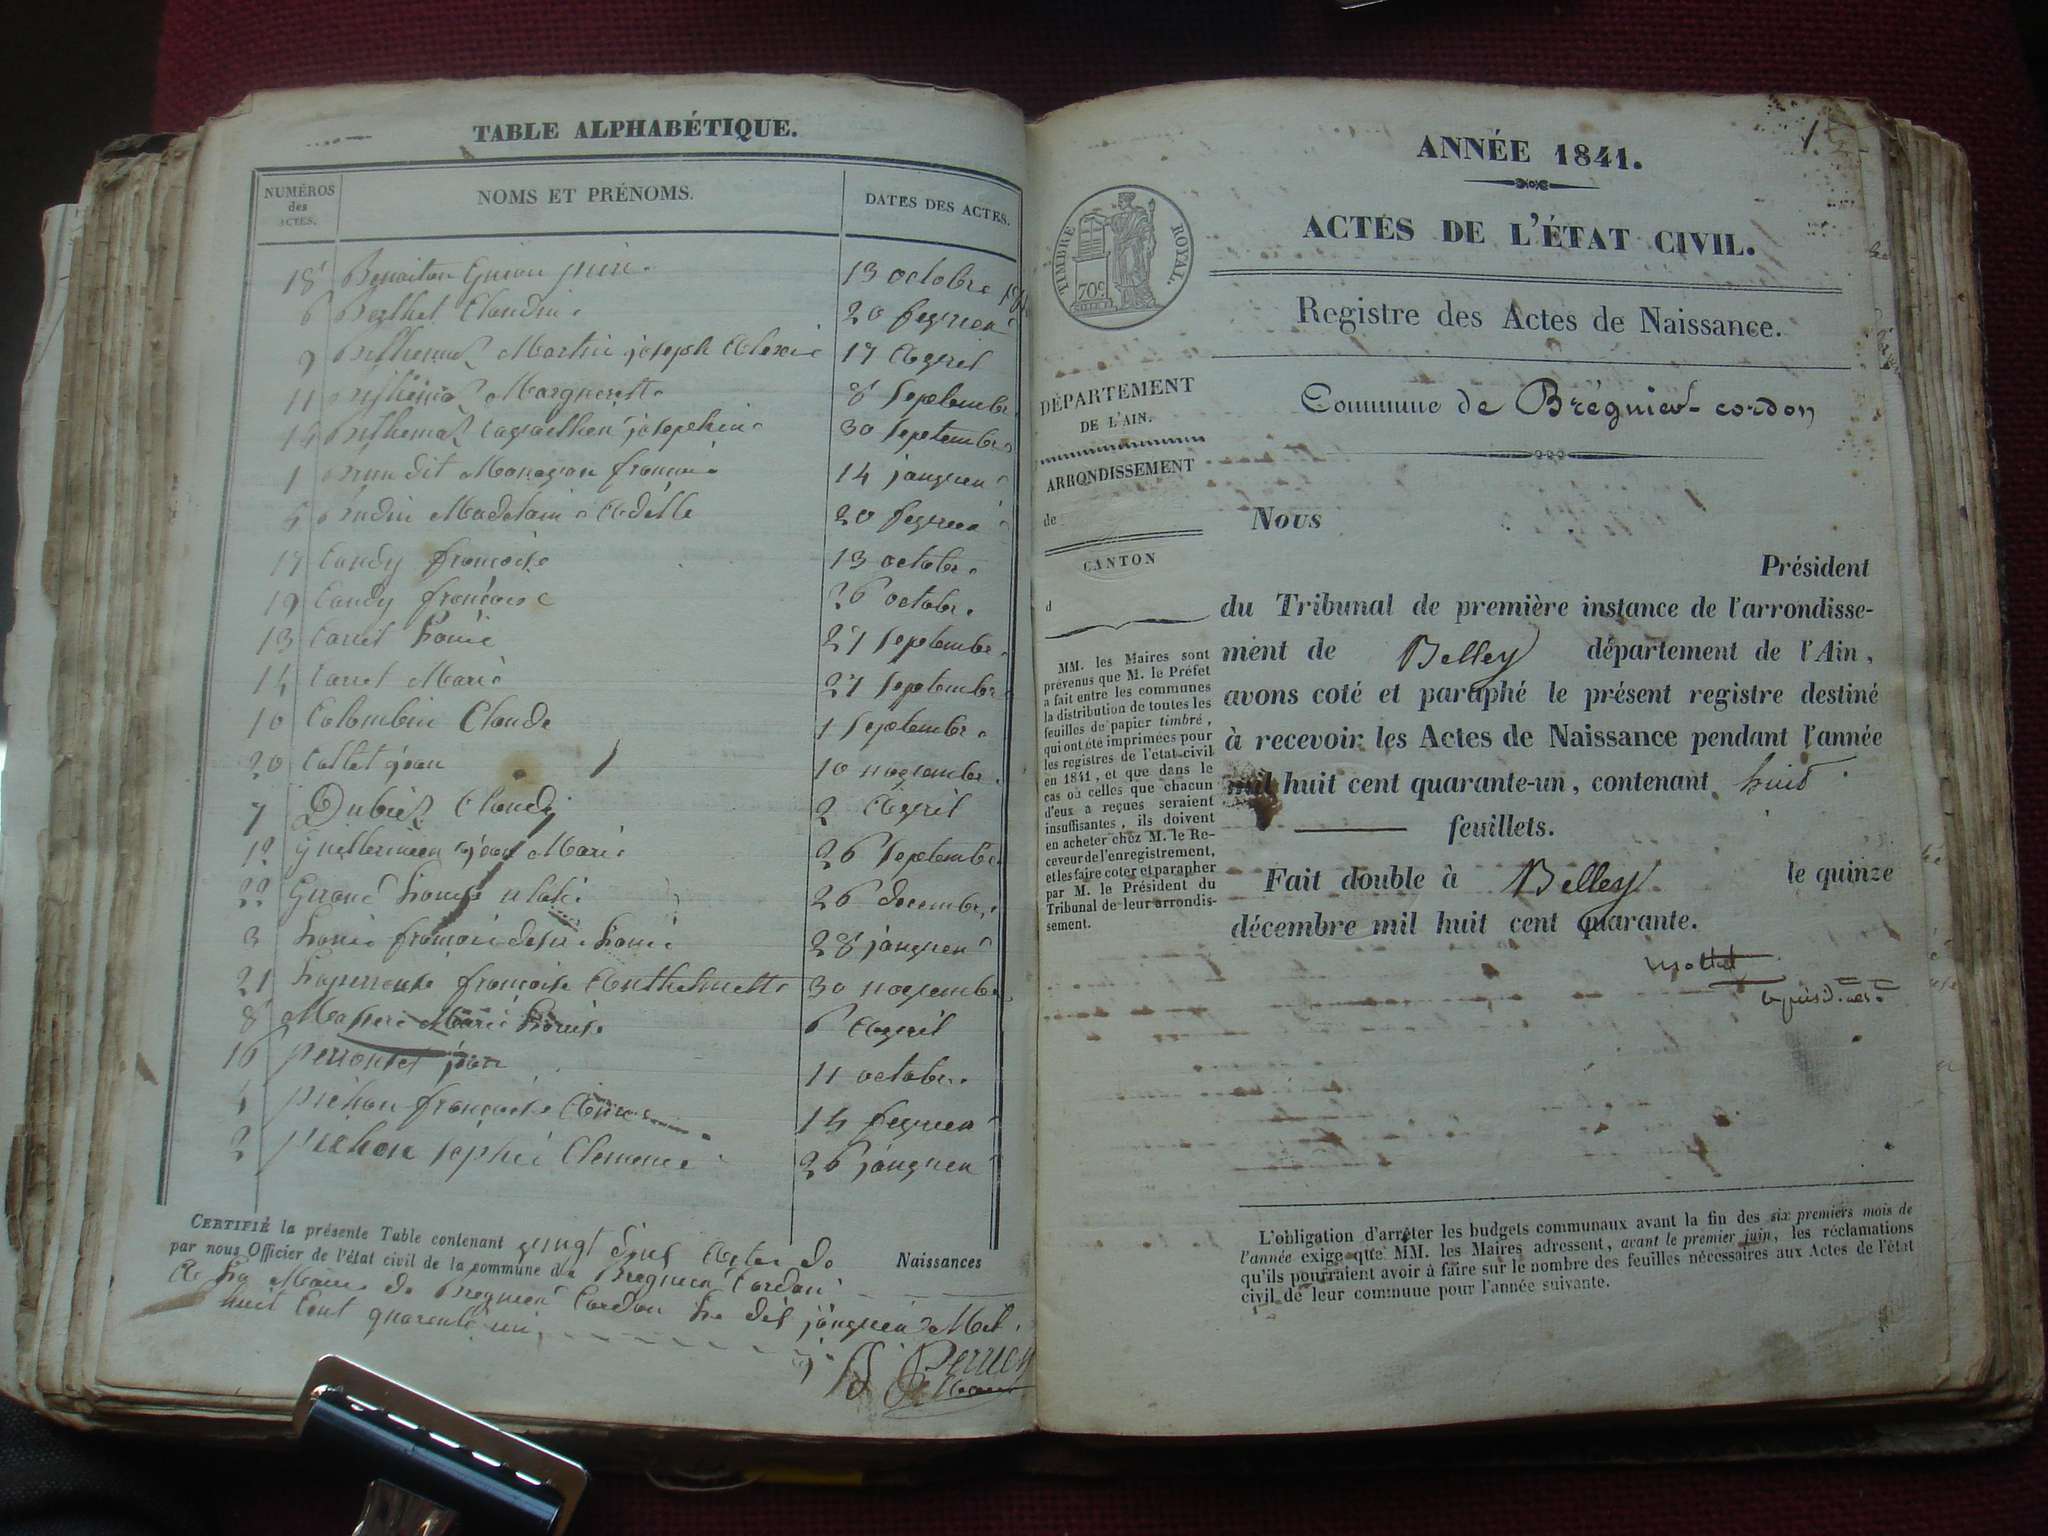 TABLE ALPHABÉTIQUE.
NUMÉROS
des
ACTES.
NOMS ET PRÉNOMS.
DATES DES ACTES.
18 13 octobre
6 Berthet Claudine 20 fevrier
9 Martin joseph Alexis 17 Avril
11 Marguerite 8 Septembre
30 Septembre
1 dit 14 janvier
5 Budin Madelaine Adelle 20 fevrier
17 Candy françoise 13 octobre
19 Candy françoise 26 octobre
13 Carret Louise 27 Septembre
14 Carret Marie 27 Septembre
10 Colombin Claude 1 Septembre
20 Collet jean 10 novembre
7 Dubiez Claude 2 Avril
12 jean Marie 26 Septembre
22 Girond Louise 26 decembre
3 28 janvier
21 françoise Anthelmette 30 novembre
8 Marie Louise 6 Avril
16 Perronet jean 11 octobre
4 Pichon françoise 14 fevrier
2 Pichon sophie Clemence 26 janvier
CERTIFIÉ la présente Table contenant vingt deux Actes de Naissances
par nous Officier de l'état civil de la commune de Bregnier Cordon
A La Mairie de Bregnier Cordon Le dix janvier Mil
huit Cent quarente un
ANNÉE 1841.
1
ACTES DE L'ÉTAT CIVIL.
TIMBRE ROYAL.
70c
Registre des Actes de Naissance.
Commune de Brégnier-cordon
DÉPARTEMENT
DE L'AIN.
ARRONDISSEMENT
de
CANTON
d
MM. les Maires sont
prévenus que M. le Préfet
a fait entre les communes
la distribution de toutes les
feuilles de papier timbré,
qui ont été imprimées pour
les registres de l'état-civil
en 1841, et que dans le
cas où celles que chacun
d'eux a reçues seraient
insuffisantes, ils doivent
en acheter chez M. le Re-
ceveur de l'enregistrement,
et les faire coter et parapher
par M. le Président du
Tribunal de leur arrondis-
sement.
Nous
Président
du Tribunal de première instance de l'arrondisse-
ment de Belley département de l'Ain,
avons coté et paraphé le présent registre destiné
à recevoir les Actes de Naissance pendant l'année
mil huit cent quarante-un, contenant huit
feuillets.
Fait double à Belley le quinze
décembre mil huit cent quarante.
L'obligation d'arrêter les budgets communaux avant la fin des six premiers mois de
l'année exige que MM. les Maires adressent, avant le premier juin, les réclamations
qu'ils pourraient avoir à faire sur le nombre des feuilles nécessaires aux Actes de l'état
civil de leur commune pour l'année suivante.